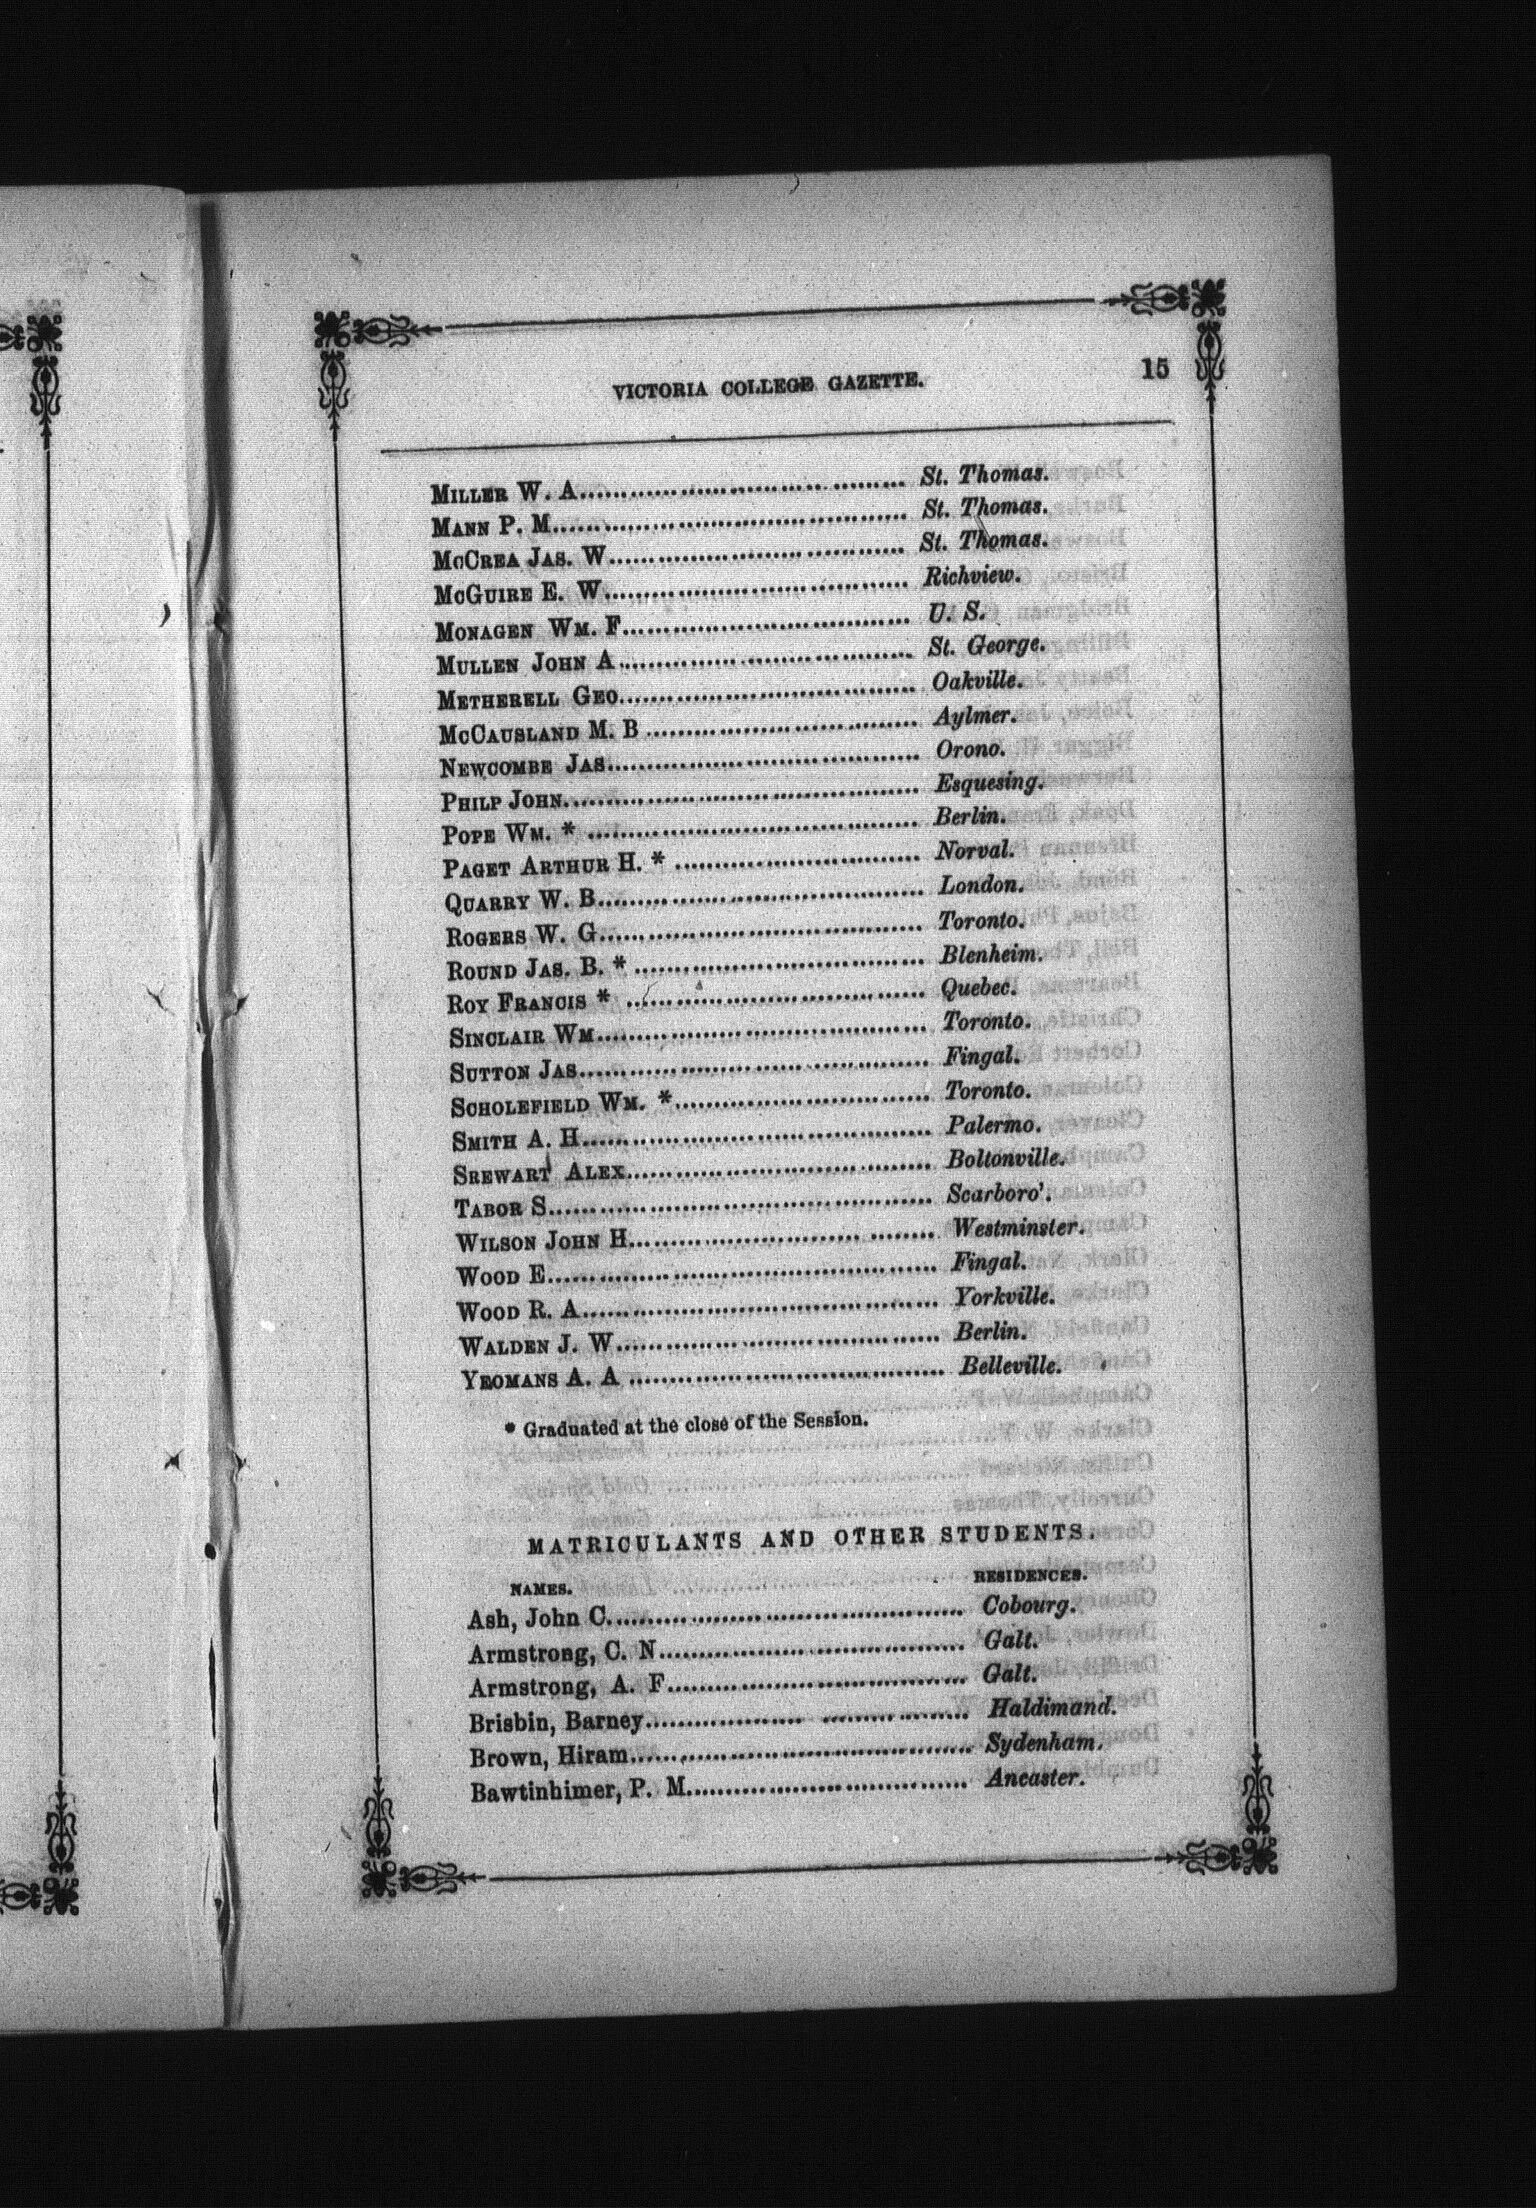 VICTORIA COLLEGE GAZETTE. 15
MILLER W. A. St. Thomas.
MANN P. M. St. Thomas.
MCCREA JAS. W. St. Thomas.
MCGUIRE E. W. Richview.
MONAGEN WM. F. U. S.
MULLEN JOHN A. St. George.
METHERELL GEO. Oakville.
MCCAUSLAND M. B. Aylmer.
NEWCOMBE JAS. Orono.
PHILP JOHN. Esquesing.
POPE WM. * Berlin.
PAGET ARTHUR H. * Norval.
QUARRY W. B. London.
ROGERS W. G. Toronto.
ROUND JAS. B. * Blenheim.
ROY FRANCIS * Quebec.
SINCLAIR WM. Toronto.
SUTTON JAS. Fingal.
SCHOLEFIELD WM. * Toronto.
SMITH A. H. Palermo.
SREWART ALEX. Boltonville.
TABOR S. Scarboro'.
WILSON JOHN H. Westminster.
WOOD E. Fingal.
WOOD R. A. Yorkville.
WALDEN J. W. Berlin.
YEOMANS A. A. Belleville.
* Graduated at the close of the Session.
MATRICULANTS AND OTHER STUDENTS.
NAMES. RESIDENCES.
Ash, John C. Cobourg.
Armstrong, C. N. Galt.
Armstrong, A. F. Galt.
Brisbin, Barney. Haldimand.
Brown, Hiram. Sydenham.
Bawtinhimer, P. M. Ancaster.